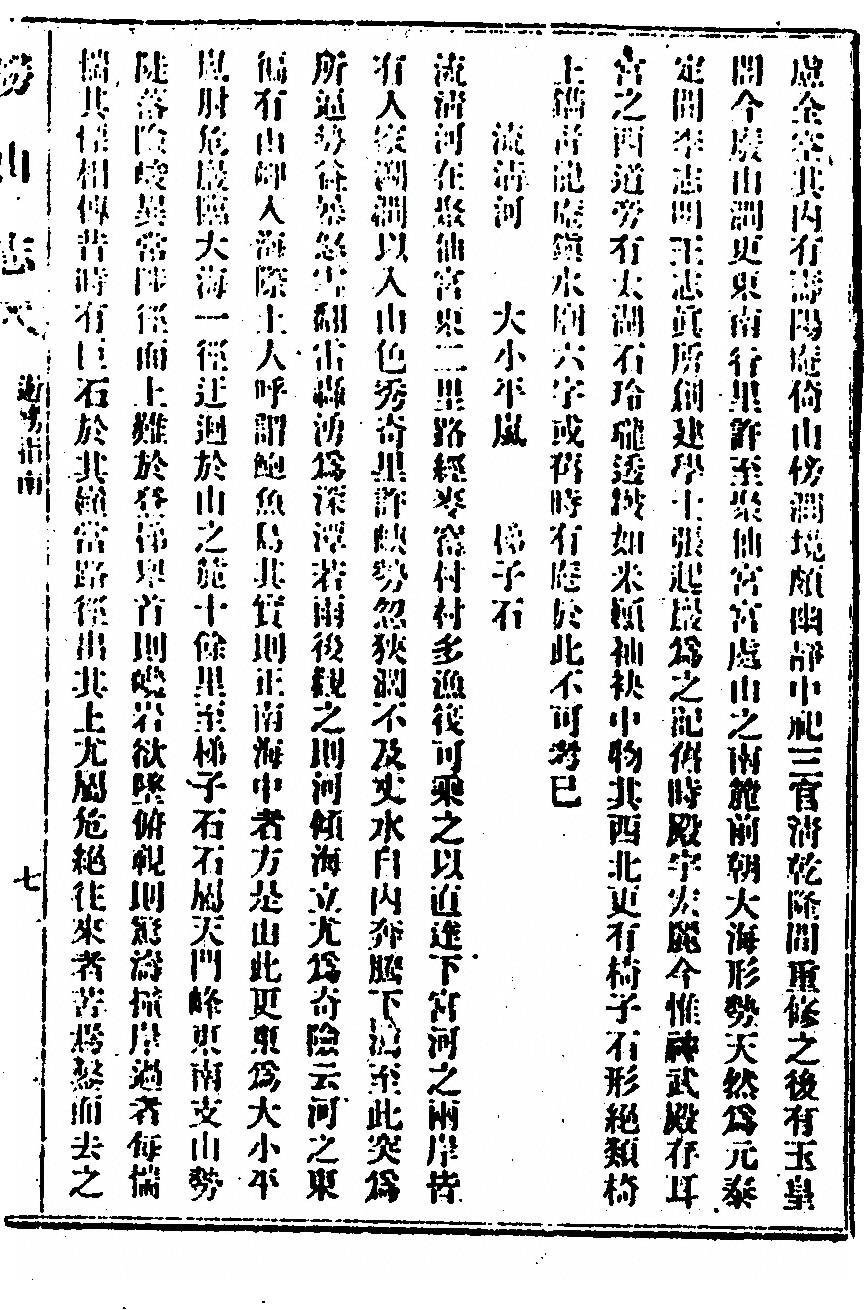 處全容其內有壽陽庵倚山傍澗境頗幽靜中祀三官清乾隆間重修之後有玉皇
閣今廢山澗更東南行里許至聚仙宮宮處山之南麓前朝大海形勢天然為元泰
定間李志明王志真所創建學士張起巖為之記舊時殿宇宏麗今惟神武殿存耳
宮之西道旁有太湖石玲瓏透潑如米顛袖袂中物其西北更有椅子石形絕類椅
上鐫青龍庵鎮水閣六字或舊時有庵於此不可考已
流清河　大小平嵐　梯子石
流清河在聚仙宮東二里路經麥窑村村多漁筏可乘之以直達下宮河之兩岸皆
有人家湖澗以入山色秀奇里許峽勢忽狹澗不及丈水自內奔騰下瀉至此突為
所逼勢益暴怒雪翻雷轟湧為深潭若雨後觀之則河傾海立尤為奇險云河之東
偏有山卸入海際土人呼謂鮑魚島其實則正南海中者方是山此更東為大小平
嵐肘危巖臨大海一徑迂迴於山之麓十餘里至梯子石石屬天門峰東南支山勢
陡落險峻異常陟徑而上難於登梯舉首則巉岩欲墜俯視則驚濤撞岸過者每惴
惴其慄相傳昔時有巨石於其巔當路徑出其上尤屬危絕往來者苦焉鏨而去之
勞山志
遊嶗指南
七